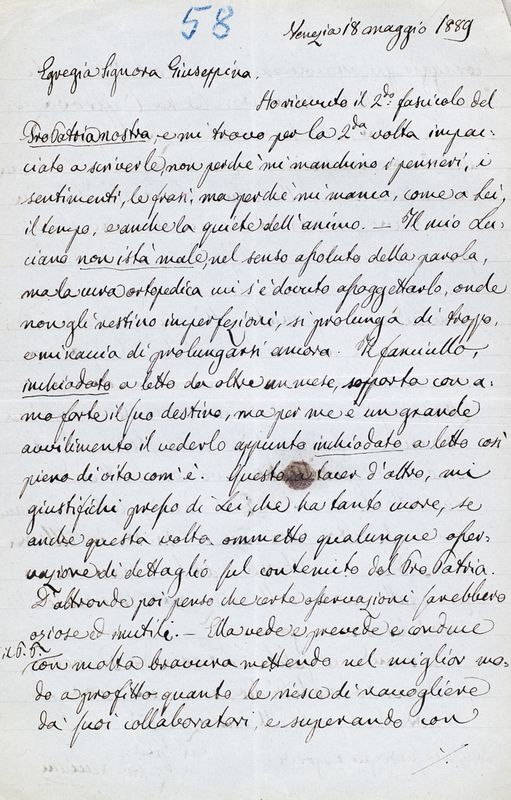 58
Venezia 18 maggio 1889
Egregia Signora Giuseppina.
Ho ricevuto il 2do fascicolo del
Pro Patria nostra, e mi trovo per la 2da volta impac-
ciato a scriverle, non perchè mi manchino i pensieri, i
sentimenti, le frasi, ma perchè mi manca, come a Lei,
il tempo, e anche la quiete dell'animo. — Il mio Lu-
ciano non istà male, nel senso assoluto della parola,
ma la cura ortopedica cui s'è dovuto assoggettarlo, onde
non gli restino imperfezioni, si prolunga di troppo,
e minaccia di prolungarsi ancora. Il fanciullo,
inchiodato a letto da oltre un mese, sopporta con a-
mo forte il suo destino, ma per me è un grande
avvilimento il vederlo appunto inchiodato a letto così
pieno di vita com'è. Questo, a tacer d'altro, mi
giustifichi presso di Lei, che ha tanto cuore, se
anche questa volta ommetto qualunque osser-
vazione di dettaglio sul contenuto del Pro Patria.
D'altronde poi penso che certe osservazioni sarebbero
oziose ed inutili. — Ella vede e prevede e conduce
il P. P.
con molta bravura mettendo nel miglior mo-
do a profitto quanto le riesce di raccogliere
da' suoi collaboratori, e superando con